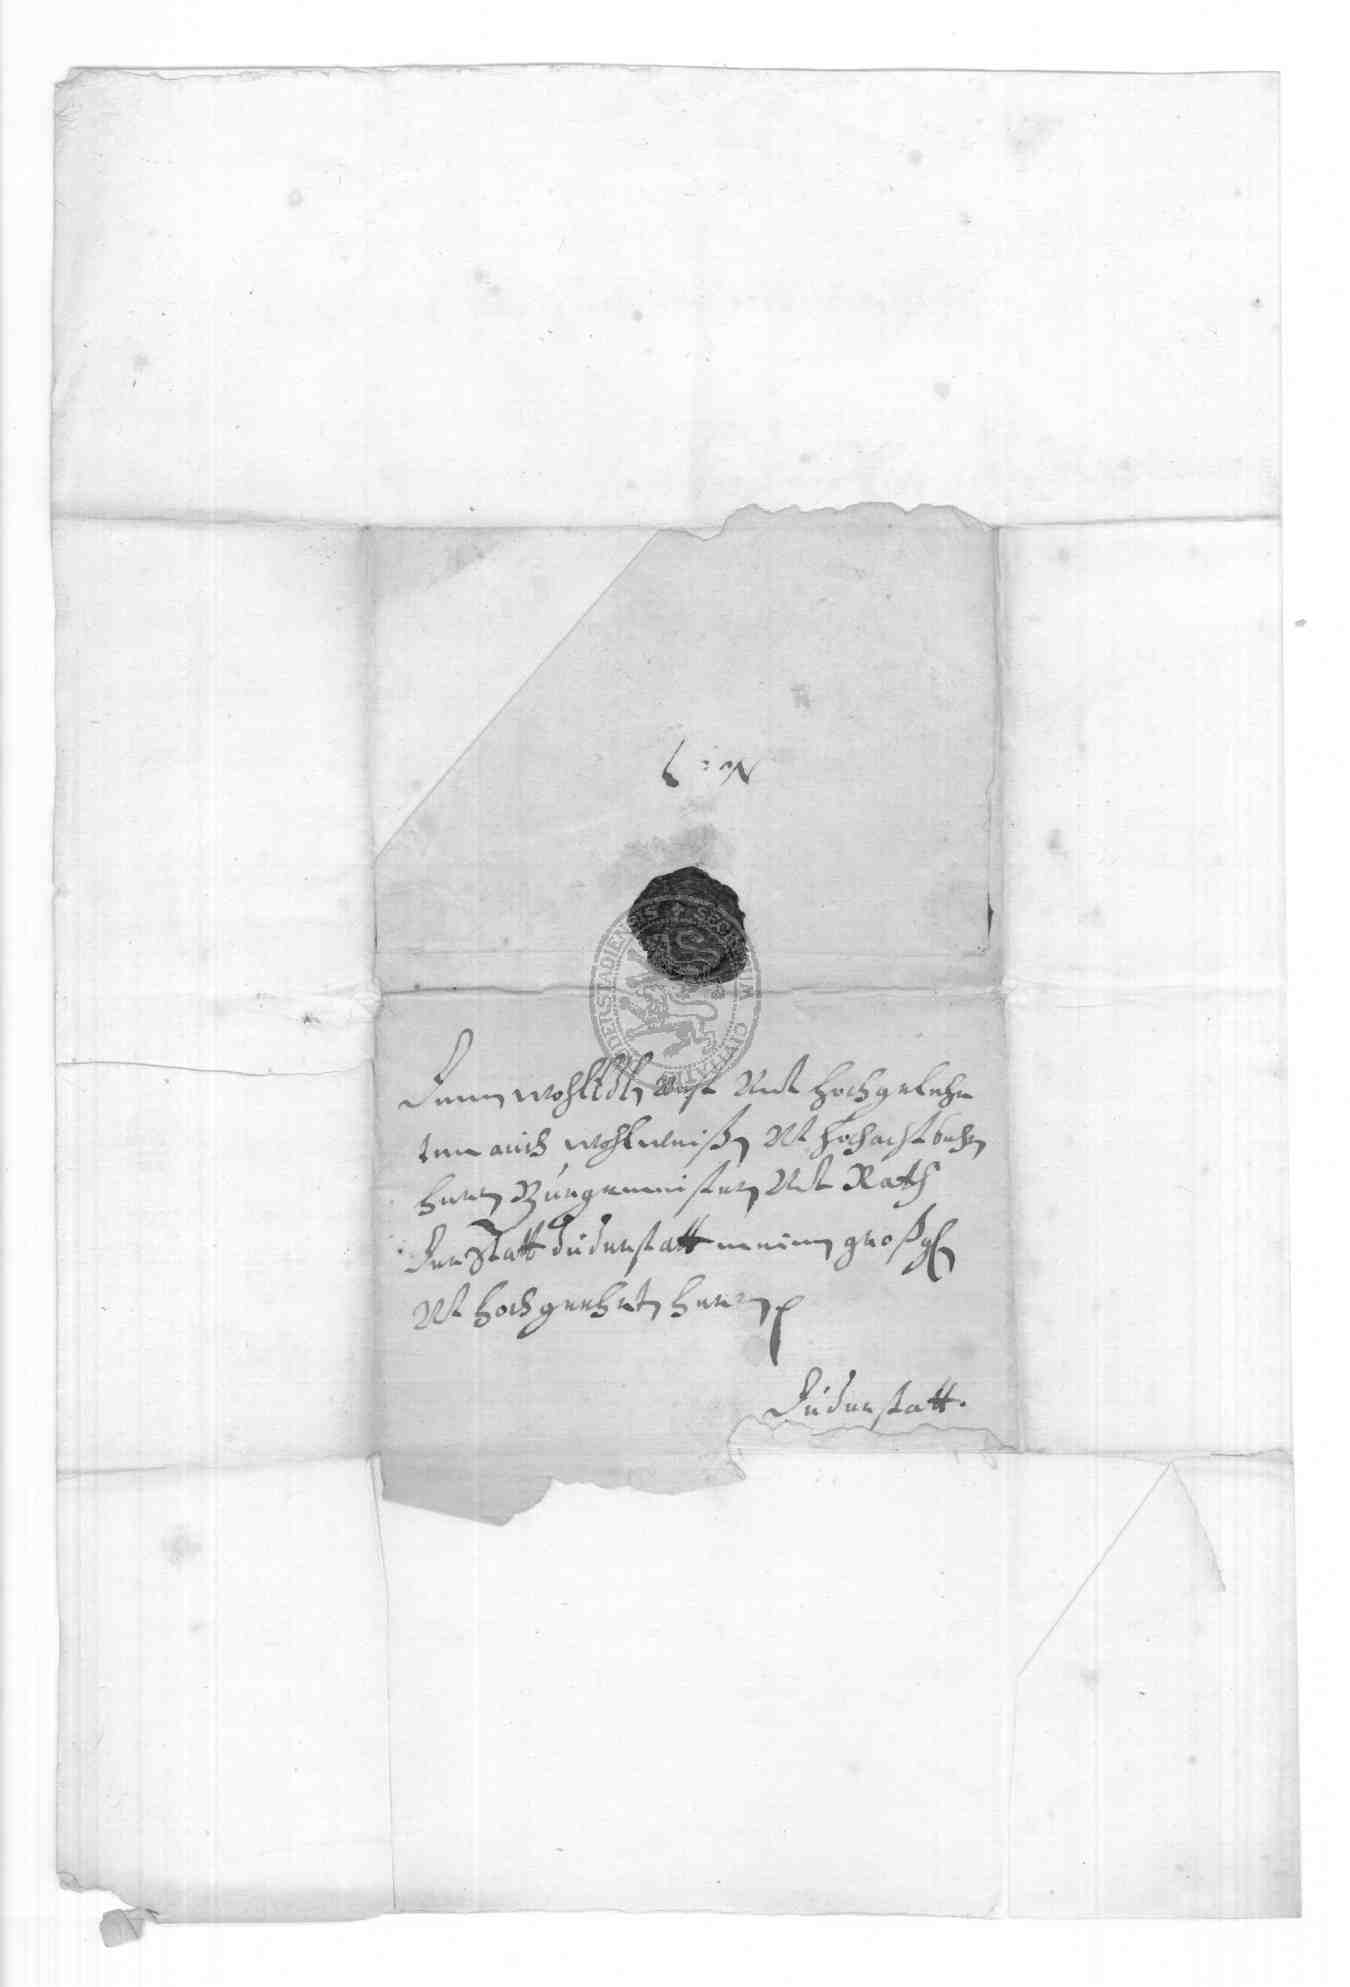 Denen wohl Edlen Vest Undt hochgelehr
ten auch wohlweißen Vt hochachtbahren
herren Bürgemeisteren Undt Rath
der Statt duderstatt meinen großgl
Vt hochgeehrten herren
Duderstatt.